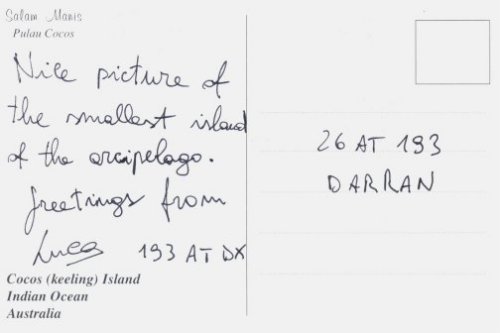 Salam Manis
Pulau Cocos
Nice picture of
the smallest island
of the arcipelago.
Greetings from
Luca 193 AT DX
Cocos (keeling) Island
Indian Ocean
Australia
26 AT 193
DARRAN